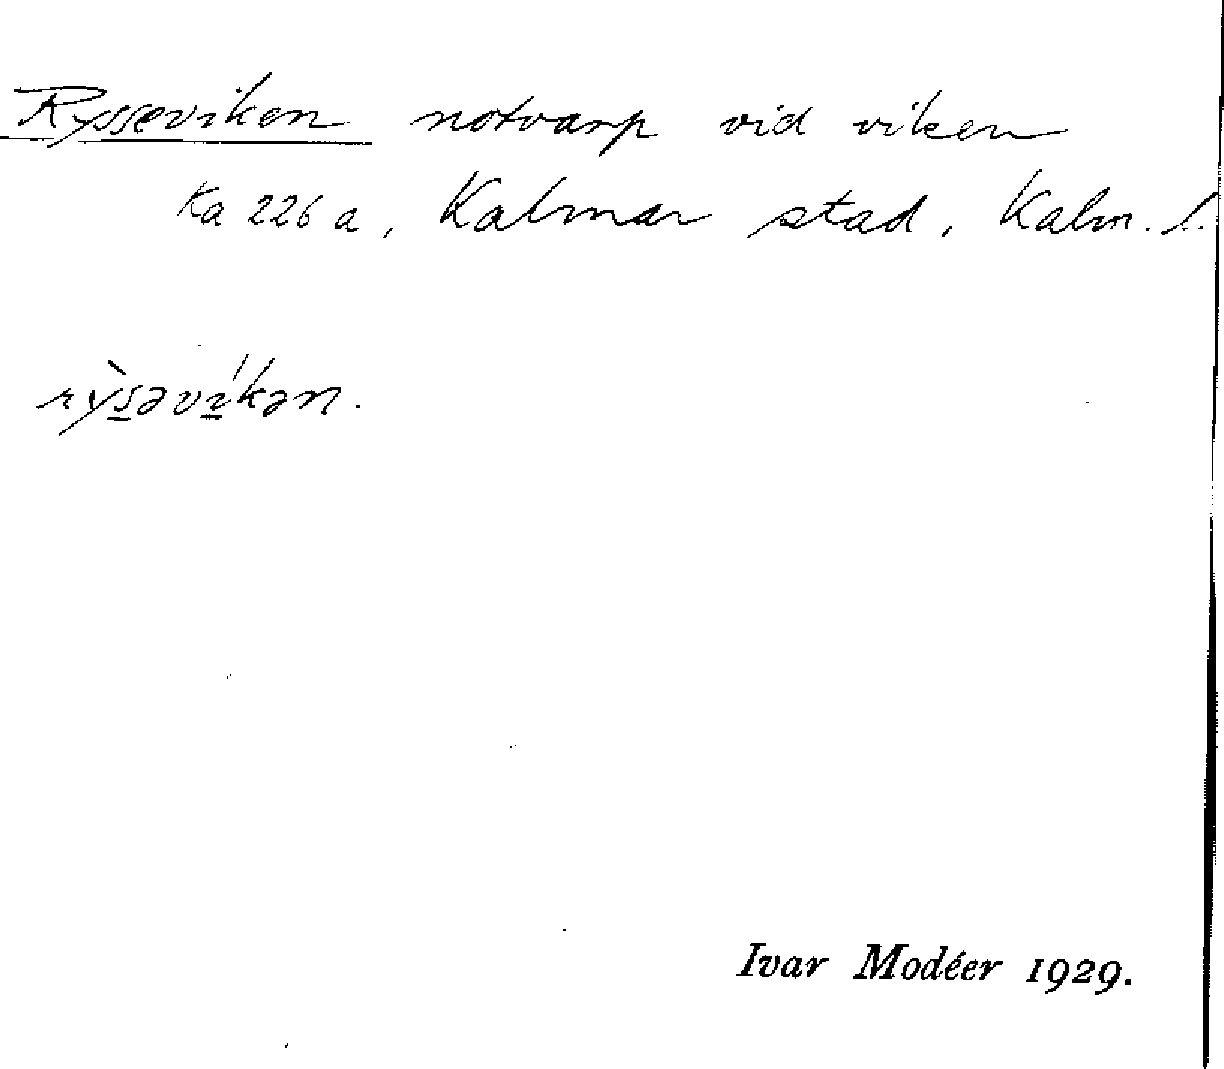 Rysseviken notvarp vid viken
Ka 226 a, Kalmar stad, Kalm. l.
rỳs̠əví̠kən.
Ivar Modéer 1929.